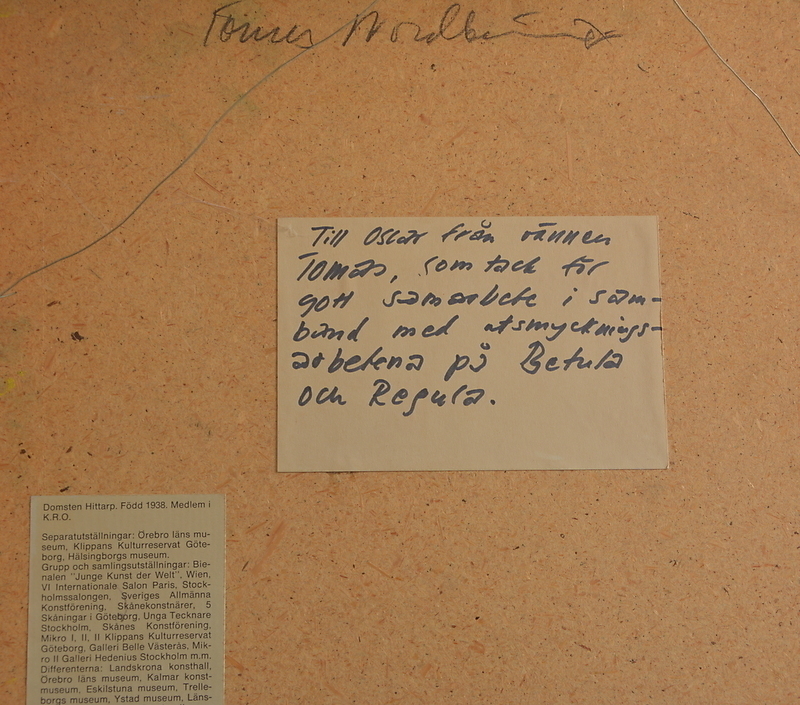 Tomas Nordbe
Till Oscar från vännen
Tomas, som tack för
gott samarbete i sam-
band med utsmycknings-
arbetena på Betula
och Regula.
Domsten Hittarp. Född 1938. Medlem i
K.R.O.
Separatutställningar: Örebro läns mu-
seum, Klippans Kulturreservat Göte-
borg, Hälsingborgs museum.
Grupp och samlingsutställningar: Bie-
nalen "Junge Kunst der Welt", Wien,
VI Internationale Salon Paris, Stock-
holmssalongen, Sveriges Allmänna
Konstförening, Skånekonstnärer, 5
Skåningar i Göteborg, Unga Tecknare
Stockholm, Skånes Konstförening,
Mikro I, II, II Klippans Kulturreservat
Göteborg, Galleri Belle Västerås, Mik-
ro II Galleri Hedenius Stockholm m.m.
Differenterna: Landskrona konsthall,
Örebro läns museum, Kalmar konst-
museum, Eskilstuna museum, Trelle-
borgs museum, Ystad museum, Läns-